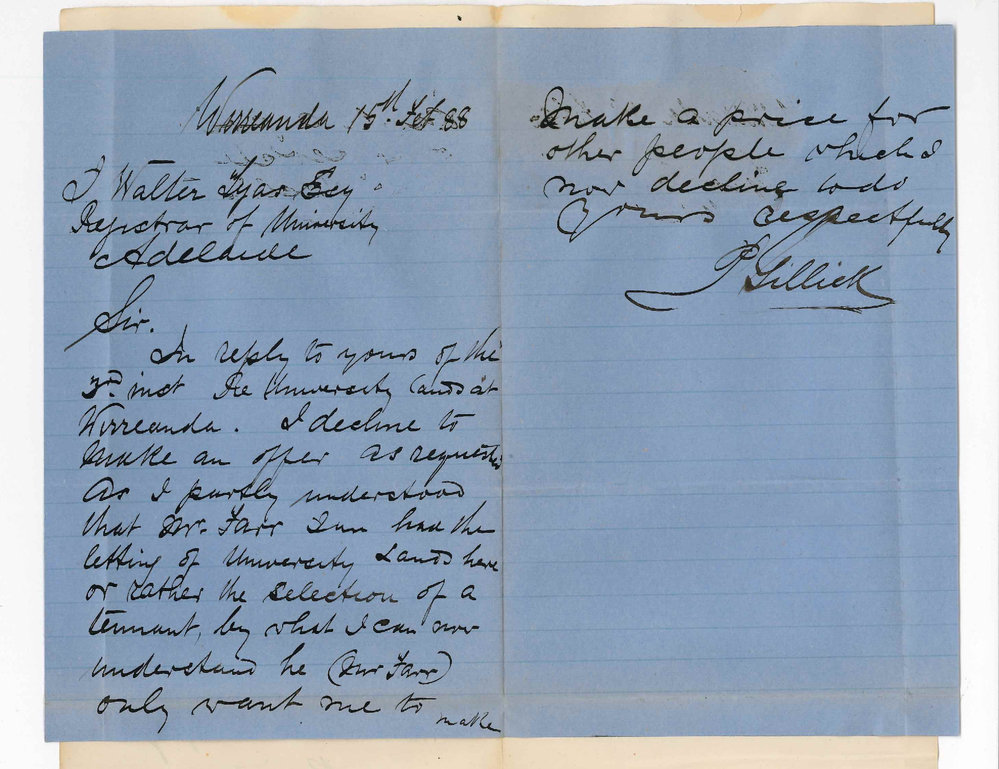 Wirreanda 15th Feb 88
J Walter Tyas Esq
Registrar of University
Adelaide
Sir.
In reply to yours of the
3rd inst Re University lands at
Wirreanda. I decline to
make an offer as requested
As I partly understood
that Mr. Farr Jun had the
letting of University Lands here
or rather the selection of a
tennant, by what I can now
understand he (Mr Farr)
only want me to
make
Make a price for
other people which I
now decline to do
Yours respectfully
P Gillick